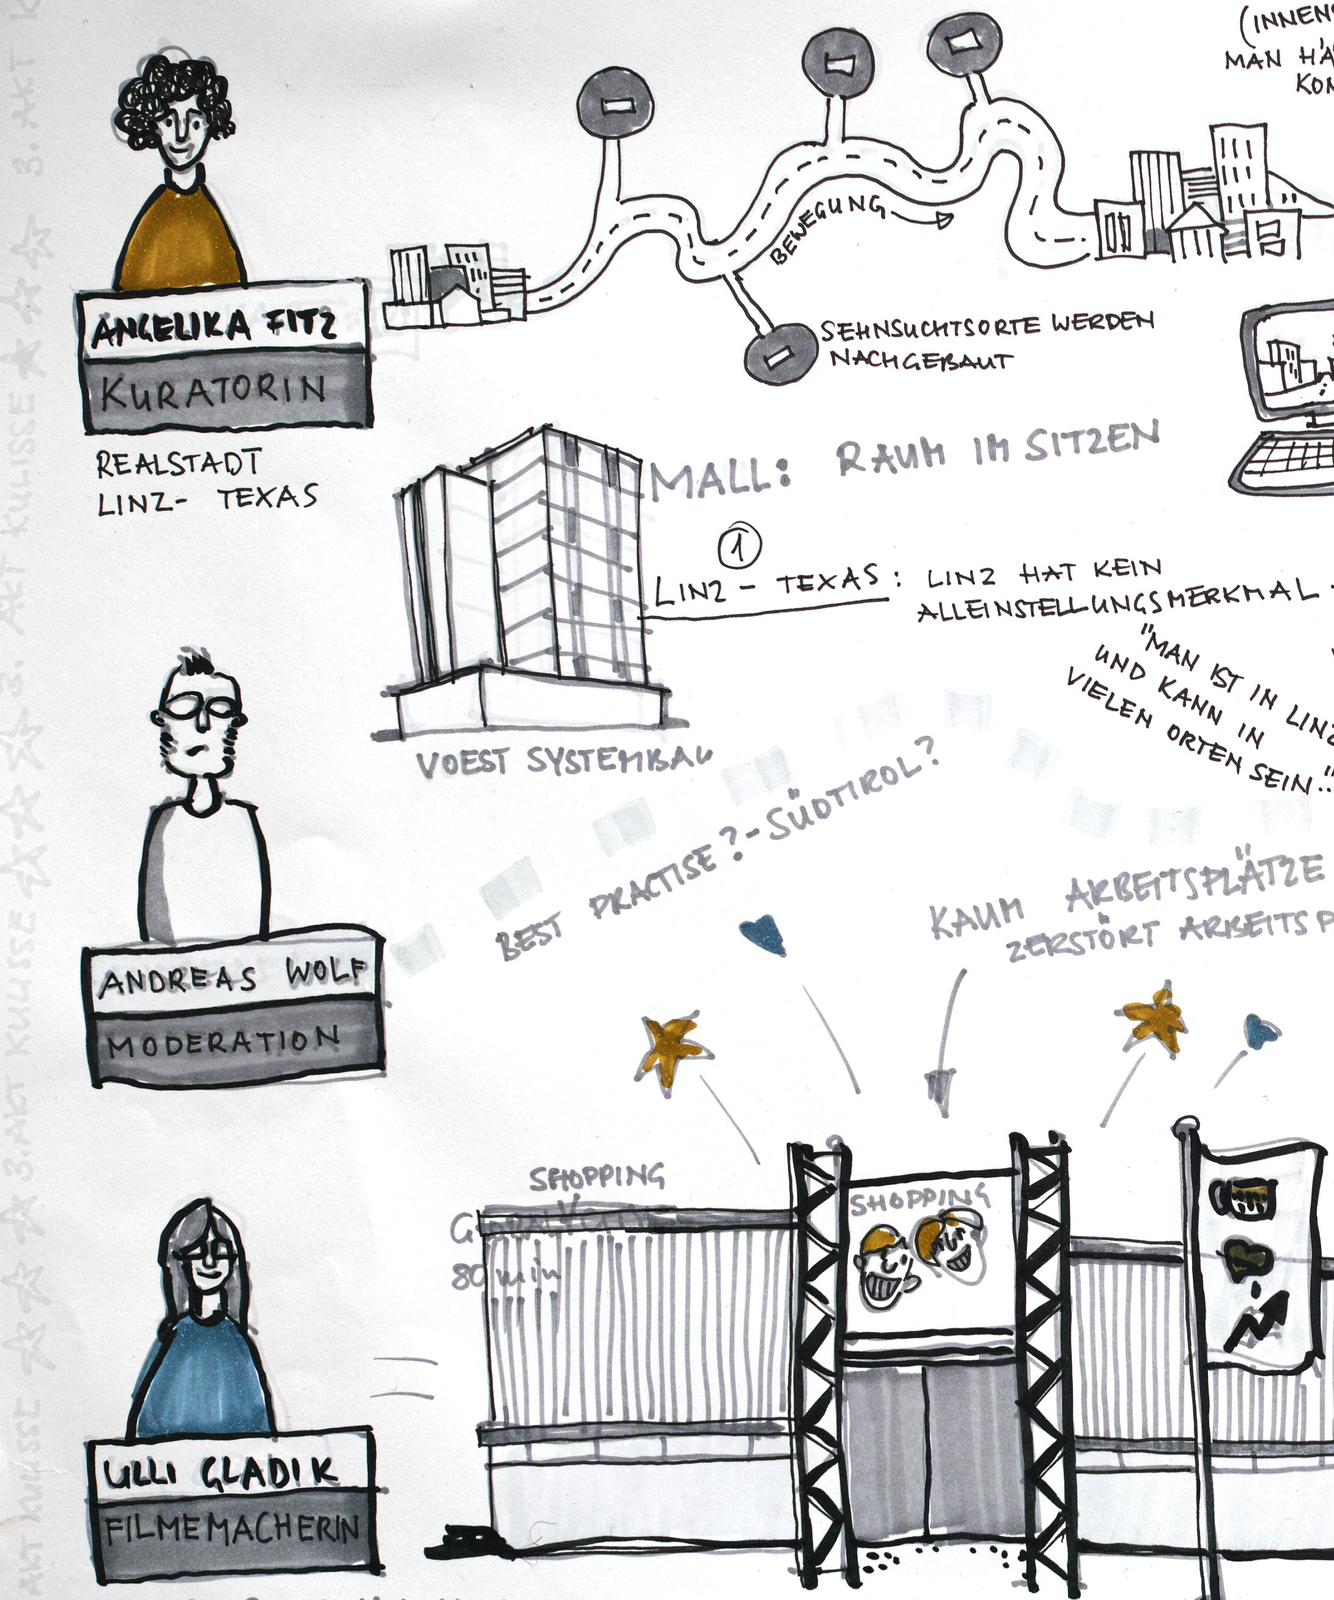 (INNEN
MAN HÄ
KON
BEWEGUNG
SEHNSUCHTSORTE WERDEN
NACHGEBAUT
ANGELIKA FITZ
KURATORIN
REALSTADT
LINZ- TEXAS
MALL: RAUM IM SITZEN
1
LINZ - TEXAS: LINZ HAT KEIN
ALLEINSTELLUNGSMERKMAL.
"MAN IST IN LINZ
UND KANN IN
VIELEN ORTEN SEIN.."
VOEST SYSTEMBAU
BEST PRACTISE?-SÜDTIROL?
KAUM ARBEITSPLÄTZE
ZERSTÖRT ARBEITSP
ANDREAS WOLF
MODERATION
SHOPPING
80 min
SHOPPING
ULLI GLADIK
FILMEMACHERIN
3. AKT KULISSE
3. AKT KULISSE
3. AKT KULISSE
AKT KULISSE